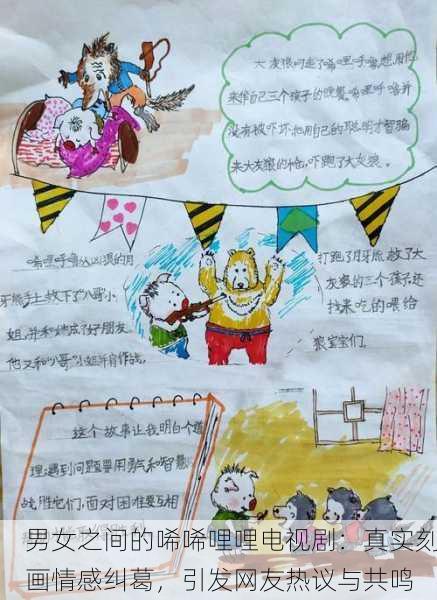 大灰狼叼走了唏哩呼噜想用他
来给自己三个孩子的晚餐。唏哩呼噜并
没有被吓坏把用自己的聪明才智骗
来大灰狼的枪，吓跑了大灰狼。
唏哩呼噜从凶狠的月
牙熊手上放下了"八哥"小
姐，并和她成了好朋友，
他又和"八哥"小姐二
打跑了月牙熊，救了大
灰狼的三个孩子，还
找来吃的喂给
狼宝宝们。
这个故事让我明白个道
理：遇到问题要用勇气和智慧
战胜它们，面对困难要互相
男女之间的唏唏哩哩电视剧：真实刻
画情感纠葛，引发网友热议与共鸣